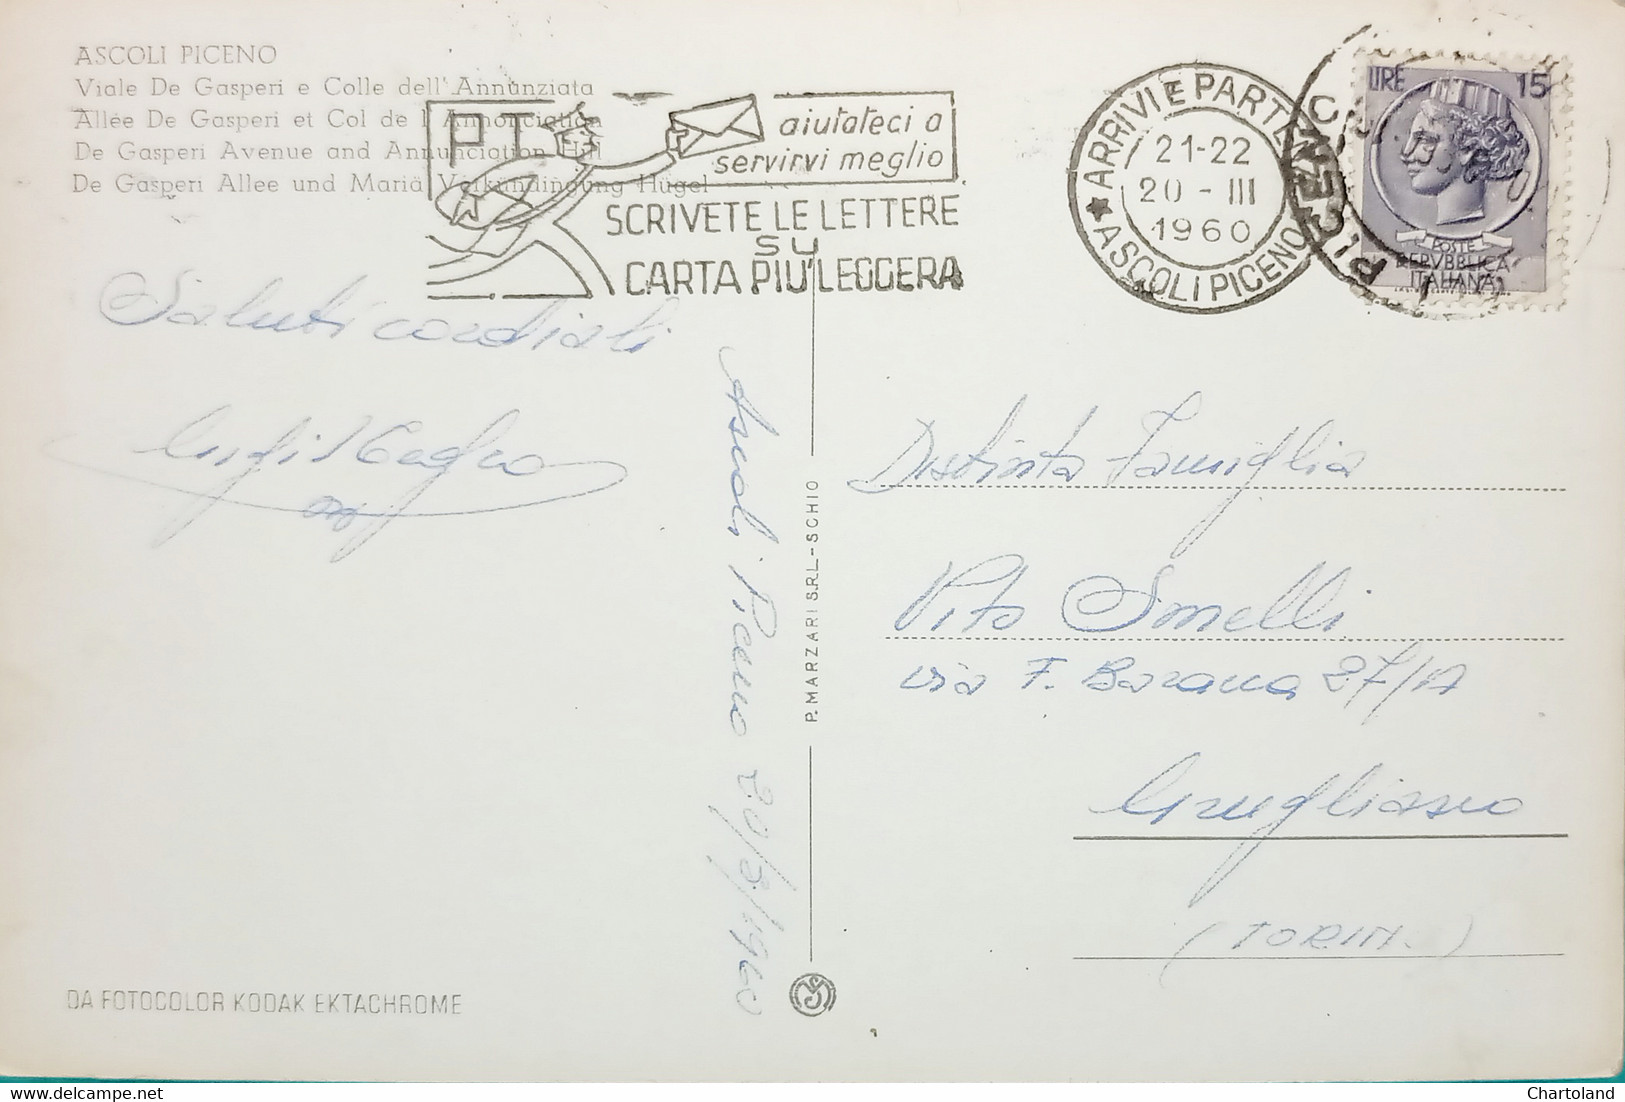 ASCOLI PICENO
Viale De Gasperi e Colle dell'Annunziata
Allée De Gasperi et Col de l'Annonciation
De Gasperi Avenue and Annunciation Hill
De Gasperi Allee und Mariä Verkündingung Hügel
PT
aiutateci a
servirvi meglio
SCRIVETE LE LETTERE
SU
CARTA PIU' LEGGERA
★ ARRIVI E PARTENZE
21-22
20-III
1960
ASCOLI PICENO
LIRE 15
POSTE
REPVBBLICA
ITALIANA
Saluti cordiali
Ascoli Piceno 20/3/1960
P. MARZARI S.R.L.-SCHIO
Distinta Famiglia
Vito Smelli
via F. Barana 27/A
Grugliasco
(TORIN.)
DA FOTOCOLOR KODAK EKTACHROME
delcampe.net
Chartoland